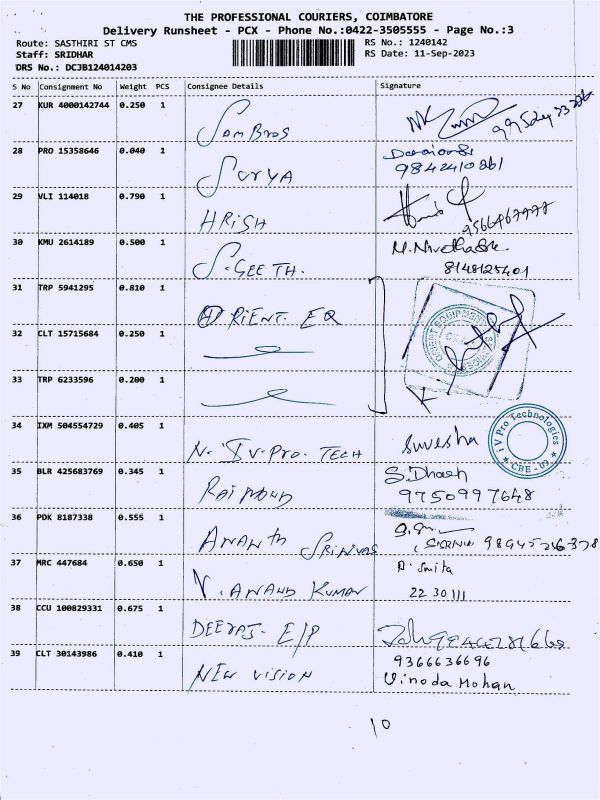 THE PROFESSIONAL COURIERS, COIMBATORE
Delivery Runsheet - PCX - Phone No.:0422-3505555 - Page No.:3
Route: SASTHIRI ST CMS
RS No.: 1240142
Staff: SRIDHAR
RS Date: 11-Sep-2023
DRS No.: DCJB124014203
S No Consignment No Weight PCS Consignee Details Signature
27 KUR 4000142744 0.250 1 Sam Bros
28 PRO 15358646 0.040 1 Surya
9842410861
29 VLI 114018 0.790 1 HRISH
30 KMU 2614189 0.500 1 S. GEETH.
8148125401
31 TRP 5941295 0.810 1 ORIENT. EQ
32 CLT 15715684 0.250 1
33 TRP 6233596 0.200 1
34 IXM 504554729 0.405 1 N. IV-PRO. TECH Suvesha
iV Pro Technologies
CBE - 09
35 BLR 425683769 0.345 1 RAIMOND S. Dhash
9750997648
36 PDK 8187338 0.555 1 ANANTH SRINIVAS
37 MRC 447684 0.650 1 V. ANAND KUMAR
2230111
38 CCU 100829331 0.675 1 DEEPAJ. E/P
39 CLT 30143986 0.410 1 NEW VISION 9366636696
Vinoda Mohan
10